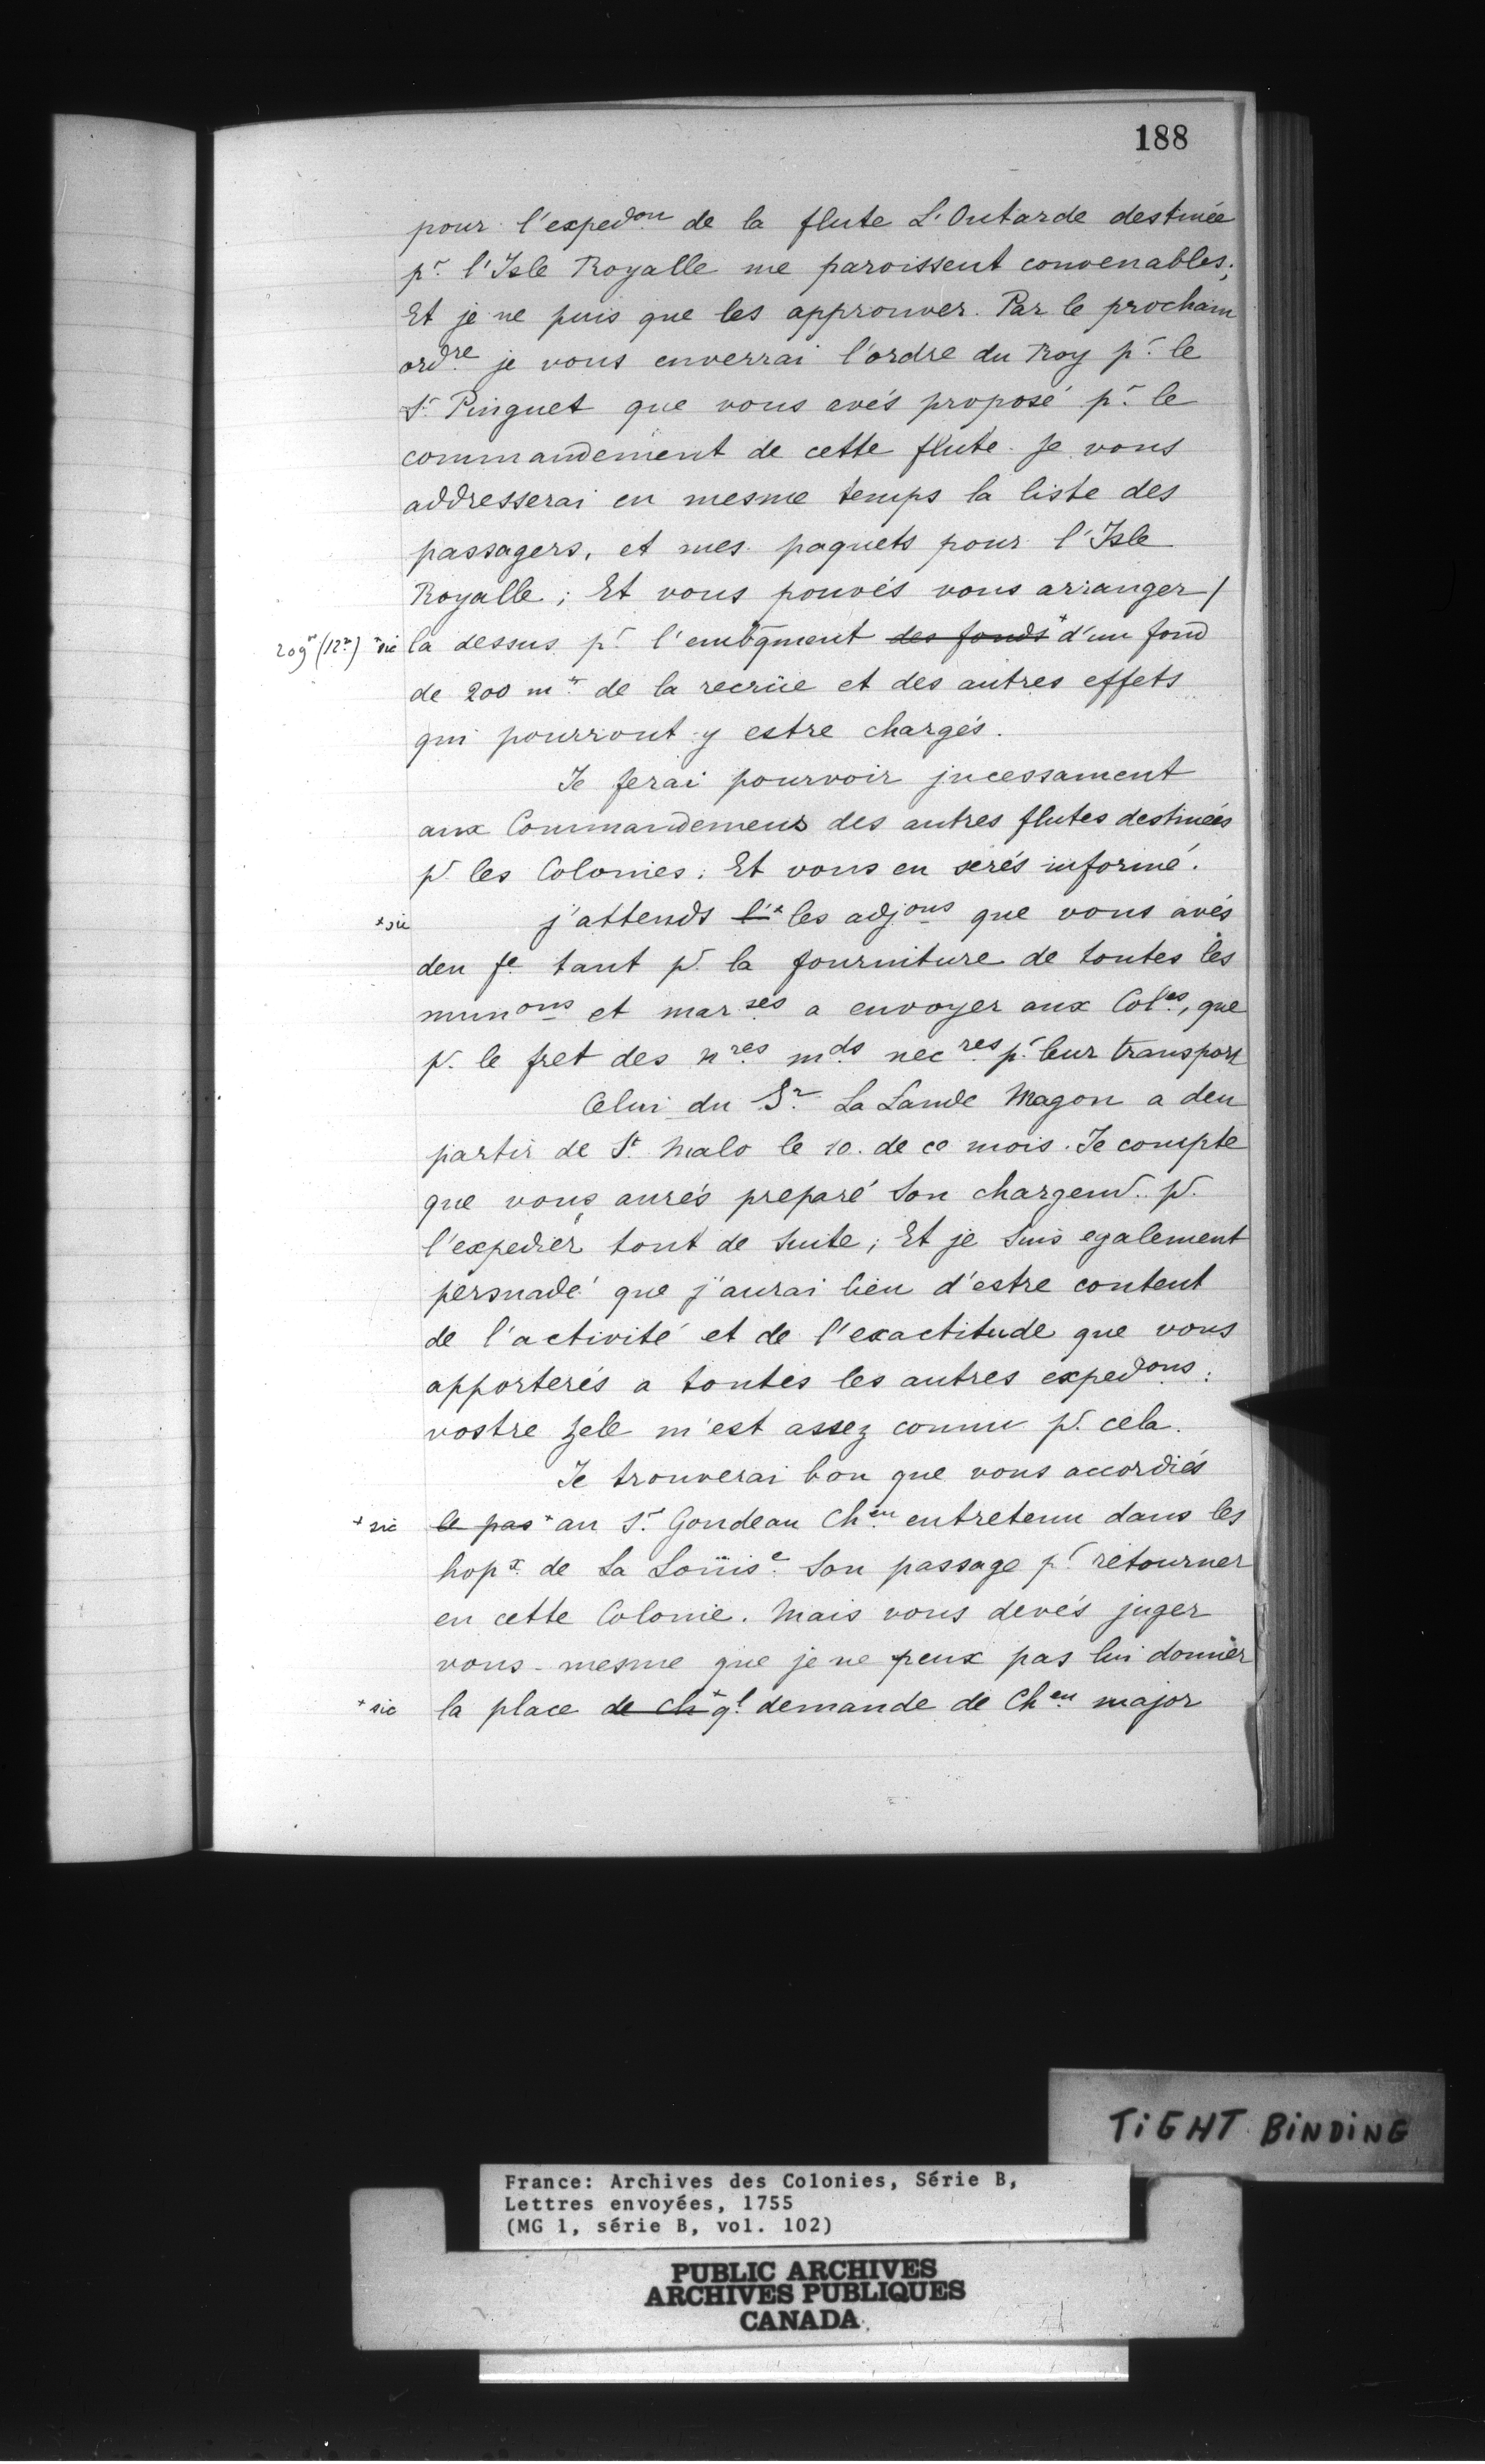 188
pour l'expedon de la flute L'Outarde destinée
pr l'Isle Royalle me paroissent convenables;
Et je ne puis que les approuver. Par le prochain
ordre je vous enverrai l'ordre du Roy pr le
Sr Pinguet que vous avés proposé pr le
commandement de cette flute. Je vous
addresserai en mesme temps la liste des
passagers, et mes paquets pour l'Isle
Royalle; Et vous pouvés vous arranger /
209 (12) +sic la dessus pr l'embqment des fonds + d'un fond
de 200 m de la recrüe et des autres effets
qui pourront y estre chargés.
Je ferai pourvoir jncessament
aux Commandemens des autres flutes destinées
pr les Colonies. Et vous en serés informé.
+sic j'attends l' + les adjons que vous avés
deu fe tant pr la fourniture de toutes les
munons et marses a envoyer aux Coles, que
pr le fret des nres mds necres pr leur transport
Celui du Sr La Lande Magon a deu
partir de St Malo le 10. de ce mois. Je compte
que vous aurés preparé son chargemt. pr
l'expedier tout de suite; Et je suis egalement
persuadé que j'aurai lieu d'estre content
de l'activité et de l'exactitude que vous
apporterés a toutes les autres expedons:
vostre zele m'est assez connu pr cela.
Je trouverai bon que vous accordiés
+ sic le pas + au Sr Gondeau Chen entretenu dans les
hopx de La Loüise son passage pr retourner
en cette Colonie. Mais vous devés juger
vous-mesme que je ne peux pas lui donner
+ sic la place de ch + ql demande de Chen major
TiGHT BiNDiNG
France: Archives des Colonies, Série B,
Lettres envoyées, 1755
(MG 1, série B, vol. 102)
PUBLIC ARCHIVES
ARCHIVES PUBLIQUES
CANADA